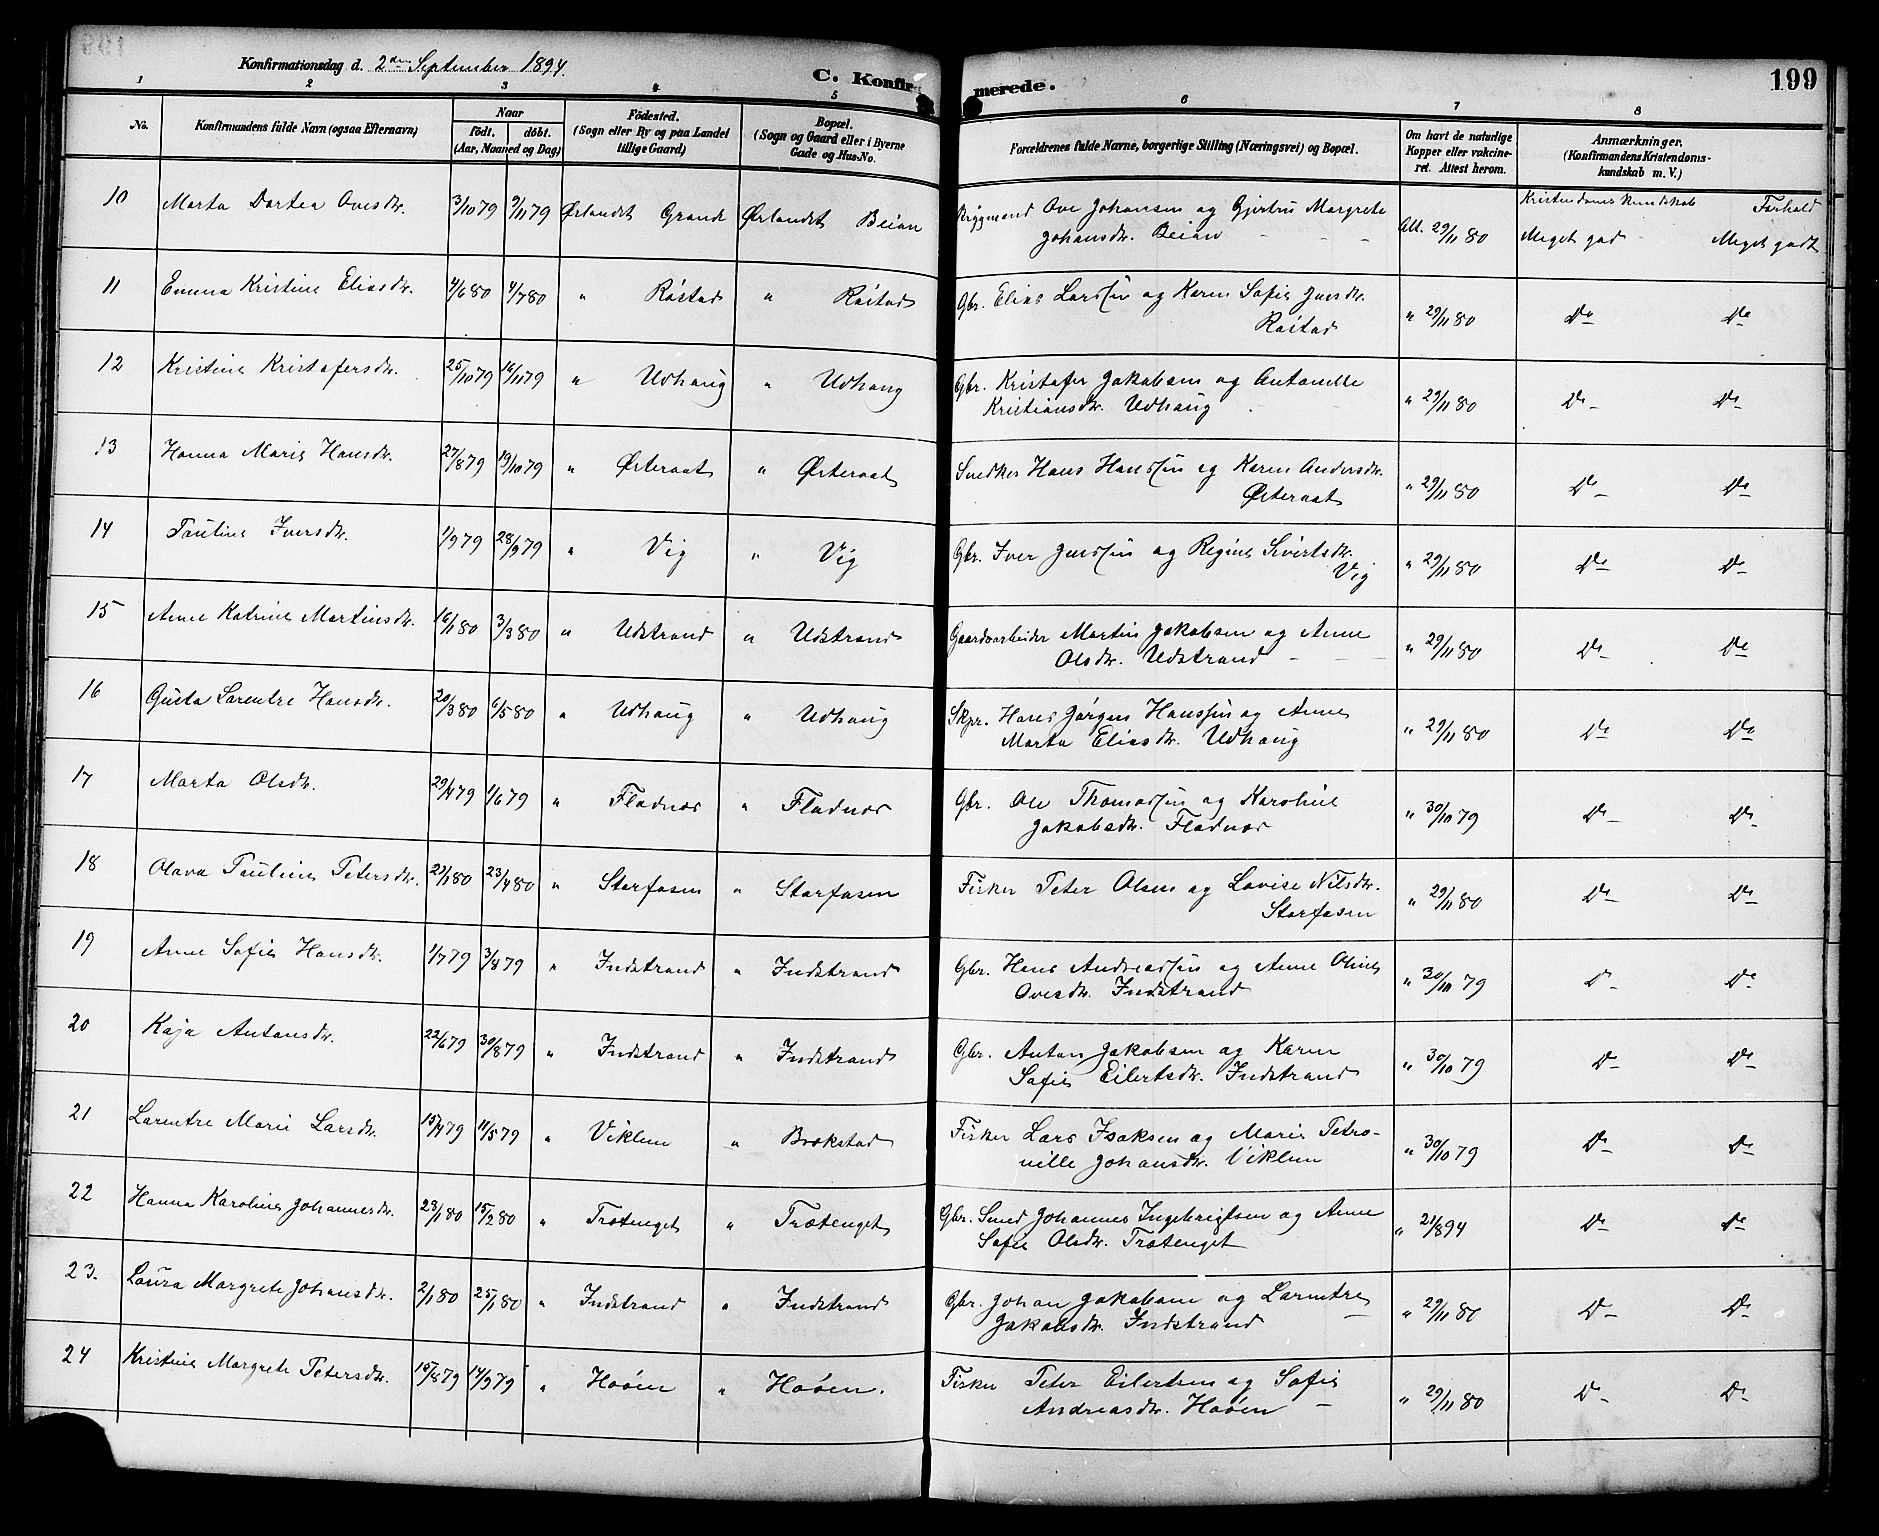 Konfirmationsdag d. 2den September 1894.
C. Konfirmerede.
199
1 2 3 4 5 6 7 8
No. Konfirmandens fulde Navn (ogsaa Efternavn) Naar født. døbt. (Aar, Maaned og Dag) Fødested. (Sogn eller By og paa Landet tillige Gaard) Bopæl. (Sogn og Gaard eller i Byerne Gade og Hus-No. Forældrenes fulde Navne, borgerlige Stilling (Næringsvei) og Bopæl. Om havt de naturlige Kopper eller vakcineret. Attest herom. Anmærkninger. (Konfirmandens Kristendomskundskab m. V.)
Kristendomskundskab Forhold
10 Marta Dortea Ovesdtr. 3/10 79 9/11 79 Ørlandet Grande Ørlandet Beian Bryggmand Ove Johansen og Gjertru Margrete
Johansdtr. Beian Att. 29/11 80 Meget god Meget godt
11 Emma Kristine Eliasdtr. 4/6 80 4/7 80 " Røstad " Røstad Gbr. Elias Larssen og Karen Sofie Jensdtr.
Røstad " 29/11 80 Do Do
12 Kristine Kristofersdtr. 25/10 79 16/11 79 " Udhaug " Udhaug Gbr. Kristofer Jakobsen og Antonette
Kristiansdtr. Udhaug " 29/11 80 Do Do
13 Hanna Marie Hansdtr. 27/8 79 19/10 79 " Østeraat " Østeraat Snedker Hans Hanssen og Karen Andersdtr.
Østeraat " 29/11 80 Do Do
14 Pauline Iversdtr. 1/9 79 28/9 79 " Vig " Vig Gbr. Iver Jenssen og Regine Sivertsdtr.
Vig " 29/11 80 Do Do
15 Anne Katrine Martinsdtr. 16/1 80 3/3 80 " Udstrand " Udstrand Gaardsarbeider Martin Jakobsen og Anne
Olsdtr. Udstrand " 29/11 80 Do Do
16 Gusta Lorentse Hansdtr. 20/3 80 6/5 80 " Udhaug " Udhaug Skpr. Hans Jørgen Hanssen og Anne
Marta Eliasdtr. Udhaug " 29/11 80 Do Do
17 Marta Olsdtr. 29/4 79 1/6 79 " Fladnes " Fladnes Gbr. Ole Thomassen og Karoline
Jakobsdtr. Fladnes " 30/10 79 Do Do
18 Olava Pauline Petersdtr. 23/4 80 " Storfosen " Storfosen Fisker Peter Olsen og Lovise Nilsdtr.
Storfosen " 29/11 80 Do Do
19 Anne Sofie Hansdtr. 1/7 79 3/8 79 " Indstrand " Indstrand Gbr. Hans Andreassen og Anne Oline
Ovesdtr. Indstrand " 30/10 79 Do Do
20 Kaja Antonsdtr. 22/6 79 30/8 79 " Indstrand " Indstrand Gbr. Anton Jakobsen og Karen
Sofie Eilertsdtr. Indstrand " 30/10 79 Do Do
21 Lorentse Marie Larsdtr. 15/4 79 11/5 79 " Viklem " Brekstad Fisker Lars Isaksen og Marie Petronille
Johansdtr. Viklem " 30/10 79 Do Do
22 Hanna Karoline Johannesdtr. 23/1 80 15/2 80 " Trætenget " Trætenget Gbr. Smed Johannes Ingebrigtsen og Anne
Sofie Olsdtr. Trætenget " 21/8 94 Do Do
23. Laura Margrete Johansdtr. 2/1 80 25/1 80 " Indstrand " Indstrand Gbr. Johan Jakobsen og Lorentse
Jakobsdtr. Indstrand " 29/11 80 Do Do
24 Kristine Margrete Petersdtr. 15/8 79 14/9 79 " Hoøen " Hoøen. Fisker Peter Eilertsen og Sofie
Andreasdtr. Hoøen " 29/11 80 Do Do